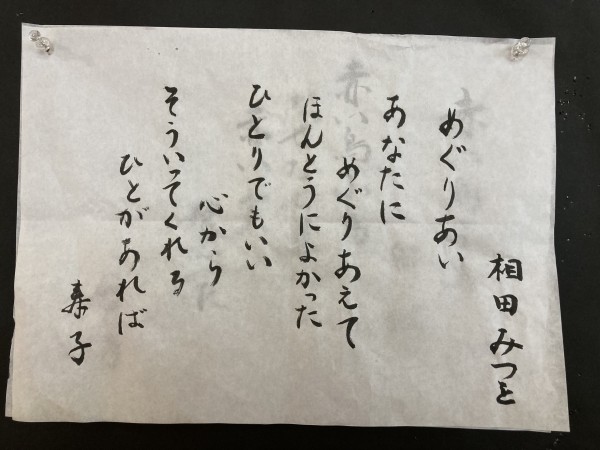 相田みつを
めぐりあい
あなたに
めぐりあえて
ほんとうによかった
ひとりでもいい
心から
そういってくれる
ひとがあれば